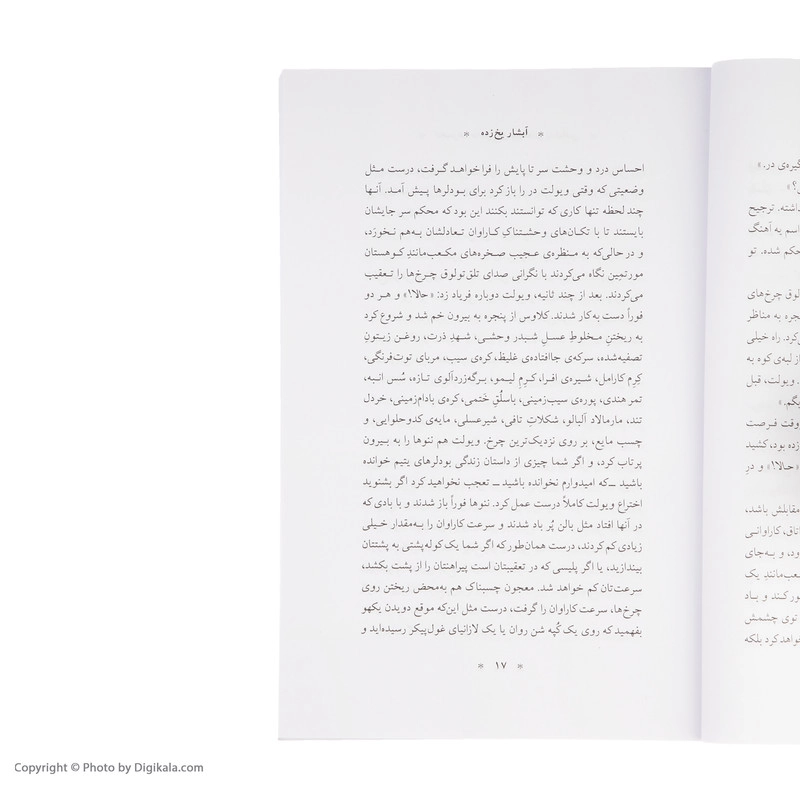 * آبشار یخ‌زده *
احساس درد و وحشت سر تا پایش را فرا خواهد گرفت، درست مثل
وضعیتی که وقتی ویولت در را باز کرد برای بودلرها پیش آمد. آنها
چند لحظه تنها کاری که توانستند بکنند این بود که محکم سر جایشان
بایستند تا با تکان‌های وحشتناکِ کاراوان تعادلشان به‌هم نخورَد،
و در حالی‌که به منظره‌ی عجیب صخره‌های مکعب‌مانندِ کوهستان
مورتمِین نگاه می‌کردند با نگرانی صدای تلق‌تولوق چرخ‌ها را تعقیب
می‌کردند. بعد از چند ثانیه، ویولت دوباره فریاد زد: «حالا!» و هر دو
فوراً دست به‌کار شدند. کلاوس از پنجره به بیرون خم شد و شروع کرد
به ریختنِ مخلوطِ عسلِ شبدر وحشی، شهدِ ذرت، روغن زیتونِ
تصفیه‌شده، سرکه‌ی جاافتاده‌ی غلیظ، کره‌ی سیب، مربای توت‌فرنگی،
کِرِم کارامل، شیره‌ی افرا، کرِمِ لیمو، برگه‌زردآلوی تازه، سُس انبه،
تمر هندی، پوره‌ی سیب‌زمینی، باسلُقِ خَتمی، کره‌ی بادام‌زمینی، خردل
تند، مارمالاد آلبالو، شکلاتِ تافی، شیرعسلی، مایه‌ی کدوحلوایی، و
چسب مایع، بر روی نزدیک‌ترین چرخ. ویولت هم ننوها را به بیرون
پرتاب کرد، و اگر شما چیزی از داستان زندگی بودلرهای یتیم خوانده
باشید ــ که امیدوارم نخوانده باشید ــ تعجب نخواهید کرد اگر بشنوید
اختراع ویولت کاملاً درست عمل کرد. ننوها فوراً باز شدند و با بادی که
در آنها افتاد مثل بالن پُر باد شدند و سرعت کاراوان را به‌مقدار خیلی
زیادی کم کردند، درست همان‌طور که اگر شما یک کوله‌پشتی به پشتتان
بیندازید، یا اگر پلیسی که در تعقیبتان است پیراهنتان را از پشت بکشد،
سرعت‌تان کم خواهد شد. معجون چسبناک هم به‌محض ریختن روی
چرخ‌ها، سرعت کاراوان را گرفت، درست مثل این‌که موقع دویدن یکهو
بفهمید که روی یک کُپه شن روان یا یک لازانیای غول‌پیکر رسیده‌اید و
* ۱۷ *
داشته. ترجیح
اسم یه آهنگ
حکم شده. تو
لوق چرخ‌های
جره به مناظر
کرد. راه خیلی
از لبه‌ی کوه به
ویولت، قبل
یگم.»
وقت فرصت
زده بود، کشید
«حالا!» و درِ
مقابلش باشد،
تاق، کاراوانی
ود، و به‌جای
عب‌مانندِ یک
ورکند و باد
توی چشمش
خواهد کرد بلکه
Copyright © Photo by Digikala.com